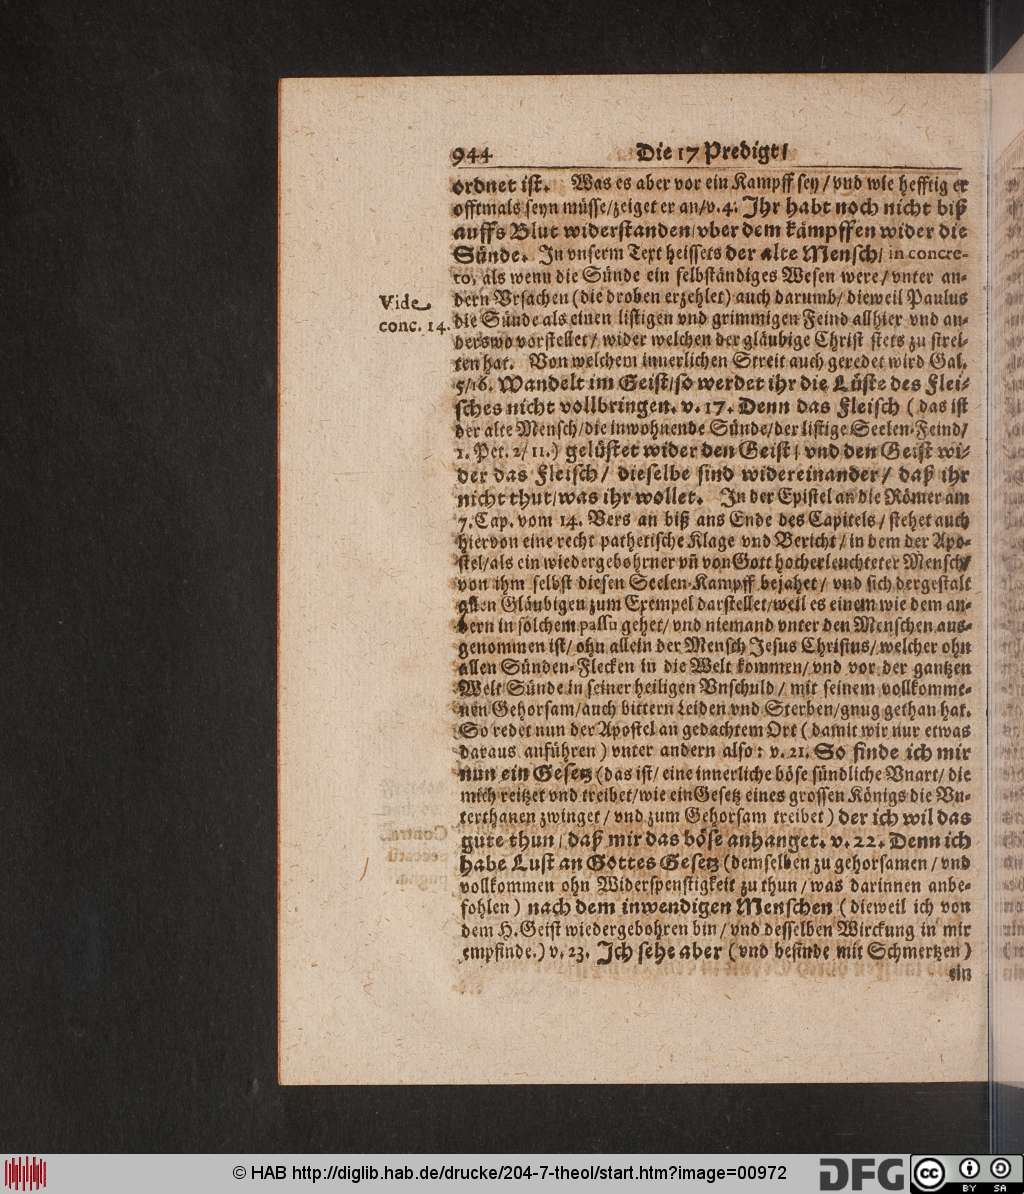 944 Die 17 Predigt/
ordnet ist. Was es aber vor ein Kampff sey/ vnd wie hefftig er
offtmals seyn müsse/zeiget er an/v.4: Ihr habt noch nicht biß
auffs Blut widerstanden/vber dem kämpffen wider die
Sünde. In vnserm Text heissets der alte Mensch/ in concre-
to, als wenn die Sünde ein selbständiges Wesen were/ vnter an-
dern Vrsachen (die droben erzehlet) auch darumb/ dieweil Paulus
Vide
conc. 14.
die Sünde als einen listigen vnd grimmigen Feind allhier vnd an-
derswo vorstellet/ wider welchen der gläubige Christ stets zu strei-
ten hat. Von welchem innerlichen Streit auch geredet wird Gal.
5/16. Wandelt im Geist/so werdet ihr die Lüste des Flei-
sches nicht vollbringen. v. 17. Denn das Fleisch ( das ist
der alte Mensch/die inwohnende Sünde/der listige Seelen-Feind/
1. Pet. 2/ 11.) gelüstet wider den Geist/ vnd den Geist wi-
der das Fleisch/ dieselbe sind widereinander/ daß ihr
nicht thut/was ihr wollet. In der Epistel an die Römer am
7. Cap. vom 14. Vers an biß ans Ende des Capitels/ stehet auch
hiervon eine recht pathetische Klage vnd Bericht/ in dem der Apo-
stel/als ein wiedergebohrner vñ von Gott hocherleuchteter Mensch/
von ihm selbst diesen Seelen-Kampff bejahet/ vnd sich dergestalt
allen Gläubigen zum Exempel darstellet/weil es einem wie dem an-
dern in solchem passu gehet/ vnd niemand vnter den Menschen aus-
genommen ist/ ohn allein der Mensch Jesus Christus/ welcher ohn
allen Sünden-Flecken in die Welt kommen/ vnd vor der gantzen
Welt Sünde in seiner heiligen Vnschuld/ mit seinem vollkomme-
nen Gehorsam/auch bittern Leiden vnd Sterben/gnug gethan hat.
So redet nun der Apostel an gedachtem Ort ( damit wir nur etwas
daraus anführen ) vnter andern also: v. 21. So finde ich mir
nun ein Gesetz (das ist/ eine innerliche böse sündliche Vnart/ die
mich reitzet vnd treibet/wie ein Gesetz eines grossen Königs die Vn-
terthanen zwinget/ vnd zum Gehorsam treibet ) der ich wil das
gute thun/ daß mir das böse anhanget. v. 22. Denn ich
habe Lust an Gottes Gesetz (demselben zu gehorsamen/ vnd
vollkommen ohn Widerspenstigkeit zu thun/ was darinnen anbe-
fohlen ) nach dem inwendigen Menschen ( dieweil ich von
dem H. Geist wiedergebohren bin/ vnd desselben Wirckung in mir
empfinde.) v. 23. Ich sehe aber (vnd befinde mit Schmertzen )
ein
© HAB http://diglib.hab.de/drucke/204-7-theol/start.htm?image=00972
DFG
cc BY SA